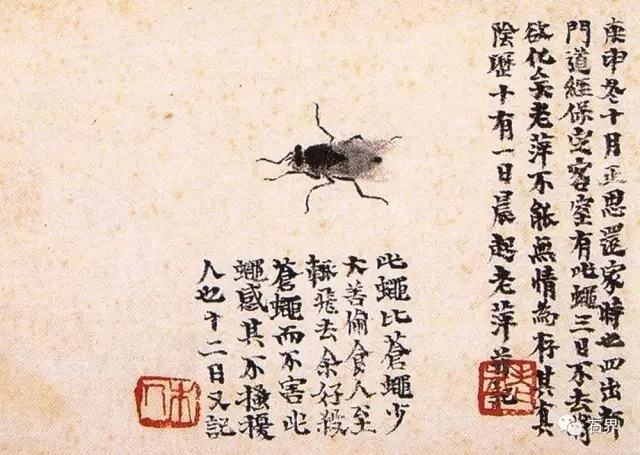 庚申冬十月正思還家時也四出都
門道經保定客室有此蠅三日不去將
欲化矣老萍不能無情為存其真
陰歷十有一日晨起老萍並記
此蠅比蒼蠅少
大善偷食人至
輒飛去余仔殺
蒼蠅而不害此
蠅感其不搔擾
人也十二日又記
木人
石界